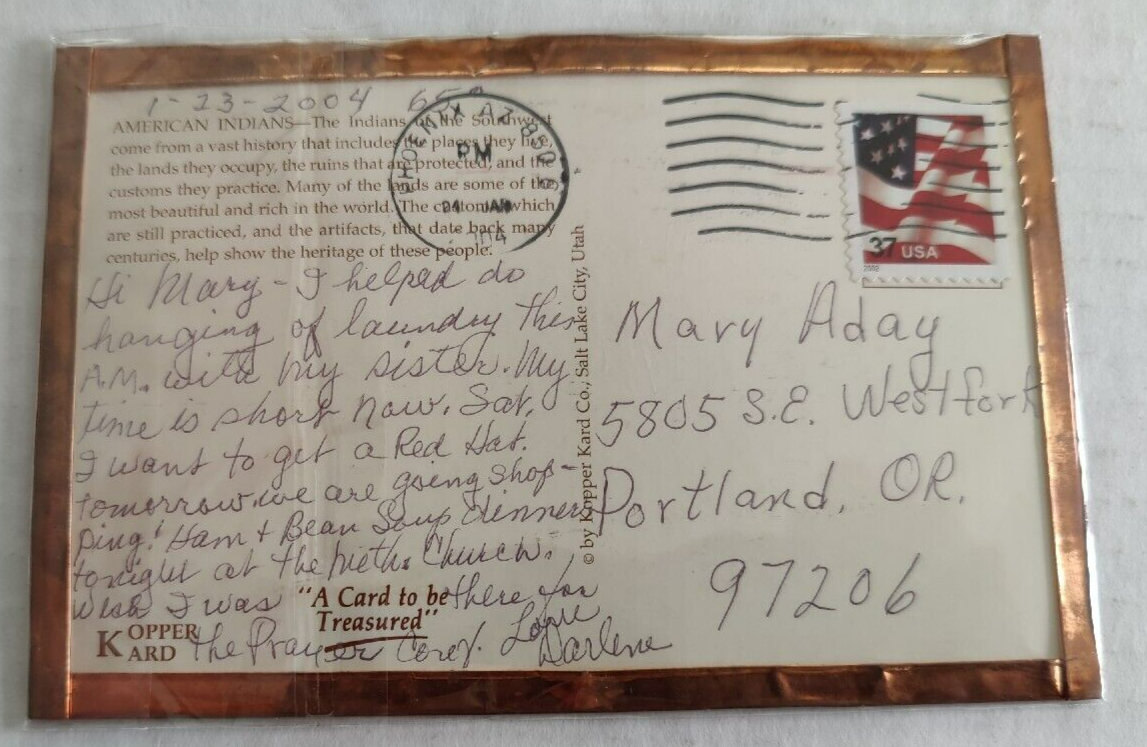 1-23-2004 65°
AMERICAN INDIANS—The Indians of the Southwest
come from a vast history that includes the places they live,
the lands they occupy, the ruins that are protected, and the
customs they practice. Many of the lands are some of the
most beautiful and rich in the world. The customs which
are still practiced, and the artifacts, that date back many
centuries, help show the heritage of these people.
Hi Mary - I helped do
hanging of laundry this
A.M. with my sister. My
time is short now. Sat.
I want to get a Red Hat.
tomorrow. we are going shop-
ping! Ham + Bean Soup dinner
tonight at the Meth. Church.
Wish I was there for
the Prayer Conf. Love
Darlene
"A Card to be
Treasured"
KOPPER
KARD
© by Kopper Kard Co., Salt Lake City, Utah
PHOENIX AZ
PM
24 JAN
37 USA
2002
Mary Aday
5805 S.E. Westfork
Portland, OR.
97206